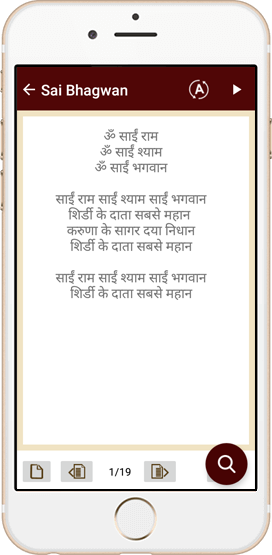 Sai Bhagwan
A
ॐ साईं राम
ॐ साईं श्याम
ॐ साईं भगवान
साईं राम साईं श्याम साईं भगवान
शिर्डी के दाता सबसे महान
करुणा के सागर दया निधान
शिर्डी के दाता सबसे महान
साईं राम साईं श्याम साईं भगवान
शिर्डी के दाता सबसे महान
1/19